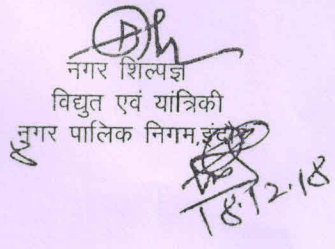 नगर शिल्पज्ञ
विद्युत एवं यांत्रिकी
नगर पालिक निगम,इंदौर
18.12.18